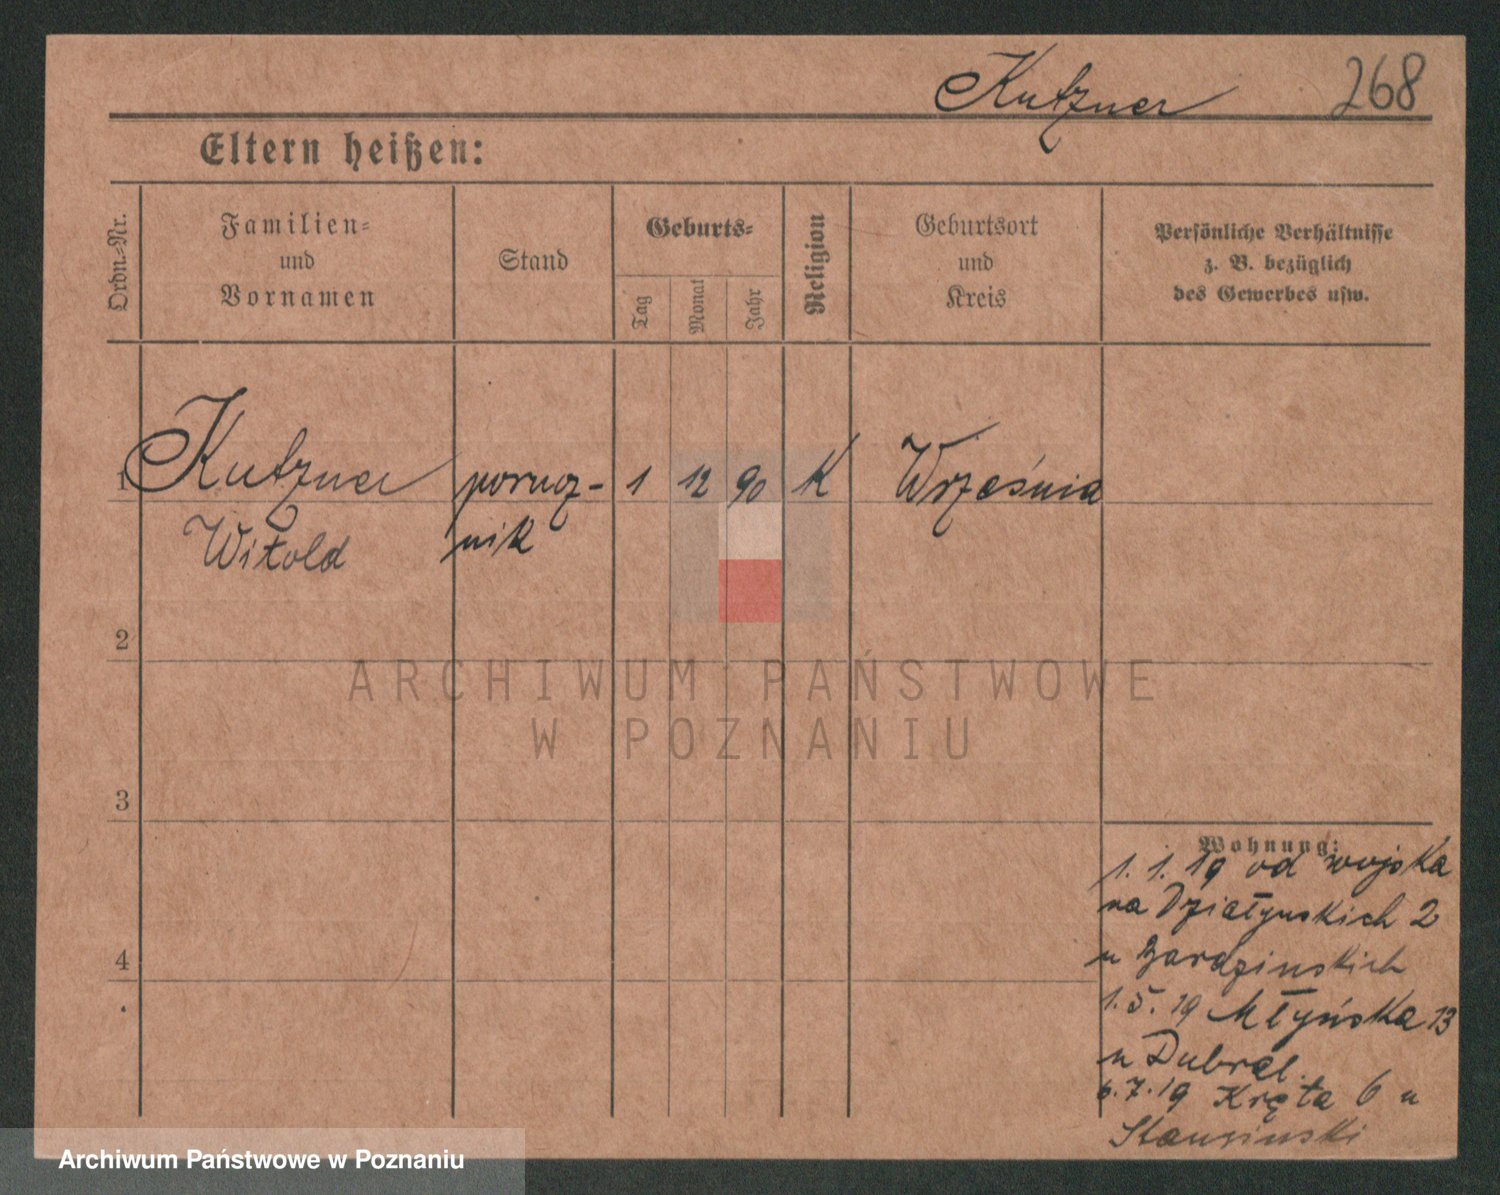 Kutzner 268
Eltern heißen:
Ordn.-Nr.
Familien-
und
Vornamen
Stand
Geburts-
Tag
Monat
Jahr
Religion
Geburtsort
und
Kreis
Persönliche Verhältnisse
z. B. bezüglich
des Gewerbes usw.
1 Kutzner porucz- 1 12 90 K Września
Witold nik
2
ARCHIWUM PAŃSTWOWE
W POZNANIU
3
Wohnung:
1. 1. 19 od wojska
na Działyńskich 2
u
4
1. 5. 19 Młyńska 13
u Dubral.
6.7.19 Kręta 6 u
Archiwum Państwowe w Poznaniu